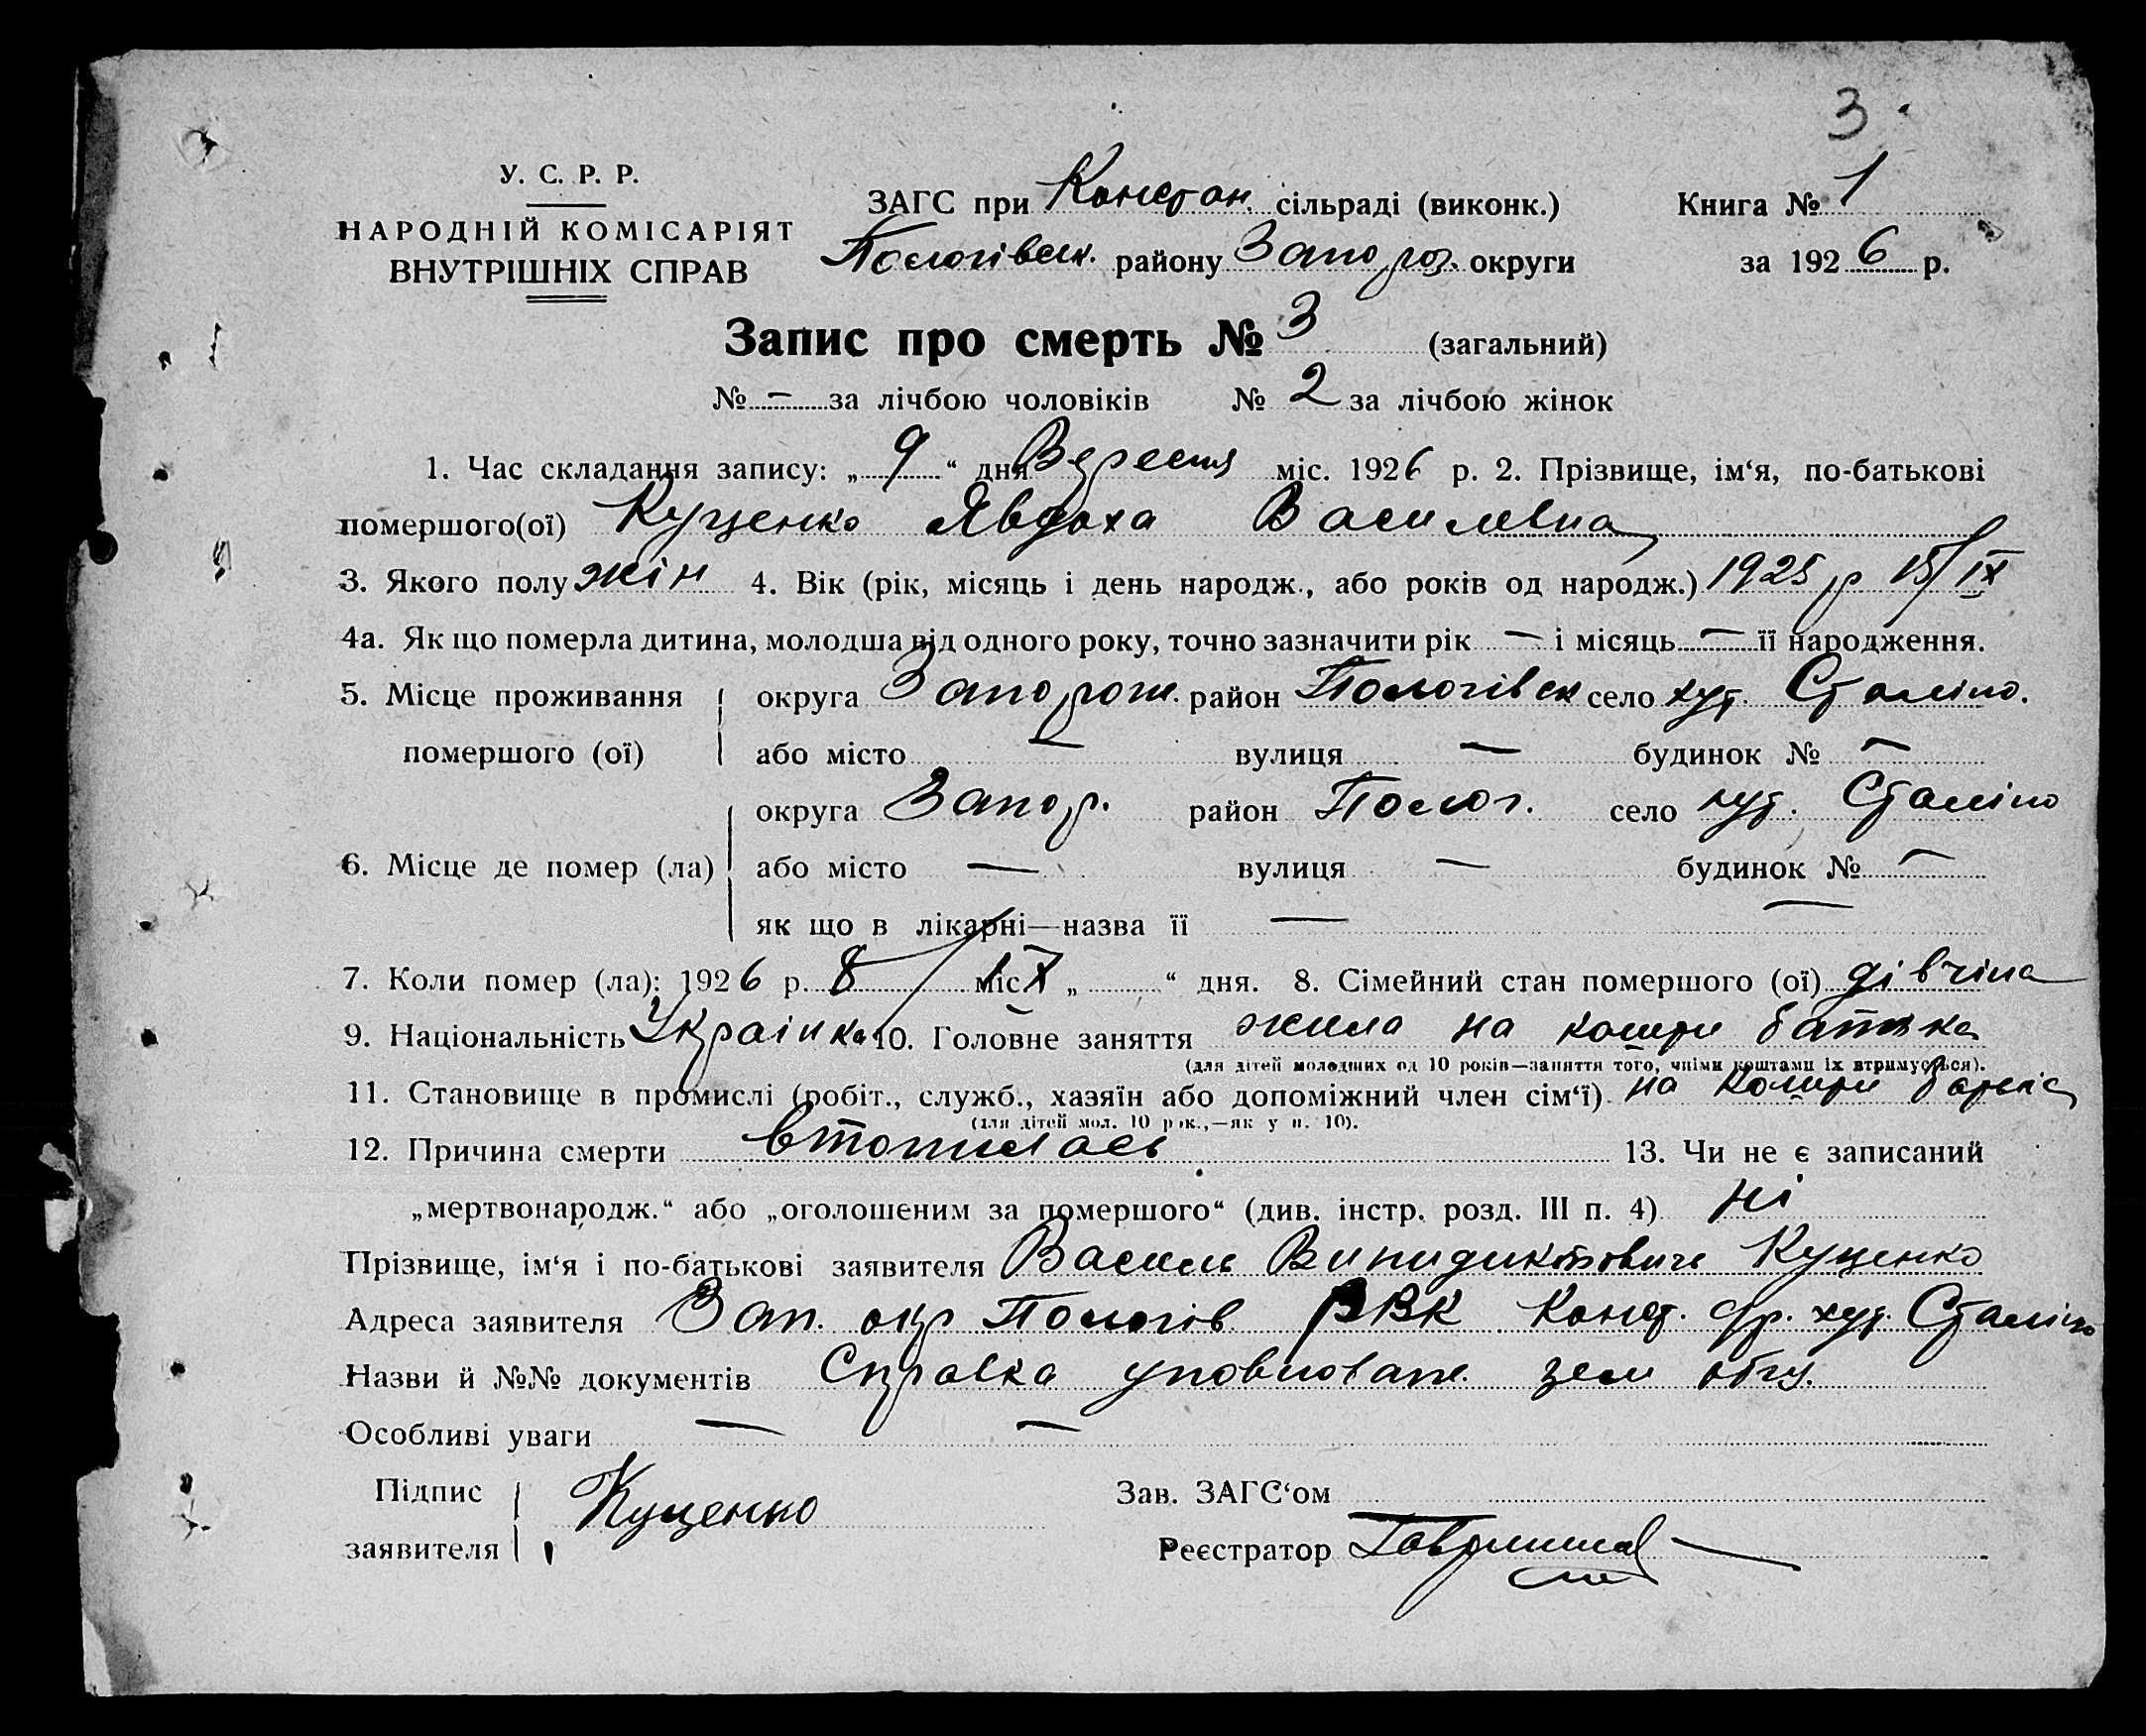 3
У. С. Р. Р.
НАРОДНІЙ КОМІСАРІЯТ
ВНУТРІШНІХ СПРАВ
ЗАГС при Констан. сільраді (виконк.)
Пологівськ. району Запоріз. округи
Книга № 1
за 1926 р.
Запис про смерть № 3 (загальний)
№ — за лічбою чоловіків № 2 за лічбою жінок
1. Час складання запису: „ 9 “ дня Вересня міс. 1926 р. 2. Прізвище, ім‘я, по-батькові
помершого(ої) Куценко Явдоха Василевна
3. Якого полу жін 4. Вік (рік, місяць і день народж., або років од народж.) 1925 р 15/IX
4а. Як що померла дитина, молодша від одного року, точно зазначити рік — і місяць — її народження.
5. Місце проживання помершого (ої)
округа Запорож. район Пологівск село хут. Сталіно.
або місто — вулиця — будинок № —
6. Місце де помер (ла)
округа Запор. район Полог. село хут. Сталіно
або місто — вулиця — будинок № —
як що в лікарні—назва її — —
7. Коли помер (ла): 1926 р. 8/ міс IX „ “ дня. 8. Сімейний стан помершого (ої) дівчина
9. Національність Українка 10. Головне заняття жила на кошти батька
(для дітей молодших од 10 років—заняття того, чиїми коштами їх втримується).
11. Становище в промислі (робіт., служб., хазяїн або допоміжний член сім‘ї) на кошти батька
(для дітей мол. 10 рок.,—як у п. 10).
12. Причина смерти втопилась 13. Чи не є записаний
„мертвонародж.“ або „оголошеним за помершого“ (див. інстр. розд. III п. 4) ні
Прізвище, ім‘я і по-батькові заявителя Василь Винидиктович Куценко
Адреса заявителя Зап. окр Пологів РВК Конст. с/р. хут. Сталіно
Назви й №№ документів Справка уповноваж. зем общ.
Особливі уваги — —
Підпис заявителя Куценко
Зав. ЗАГС‘ом
Реєстратор